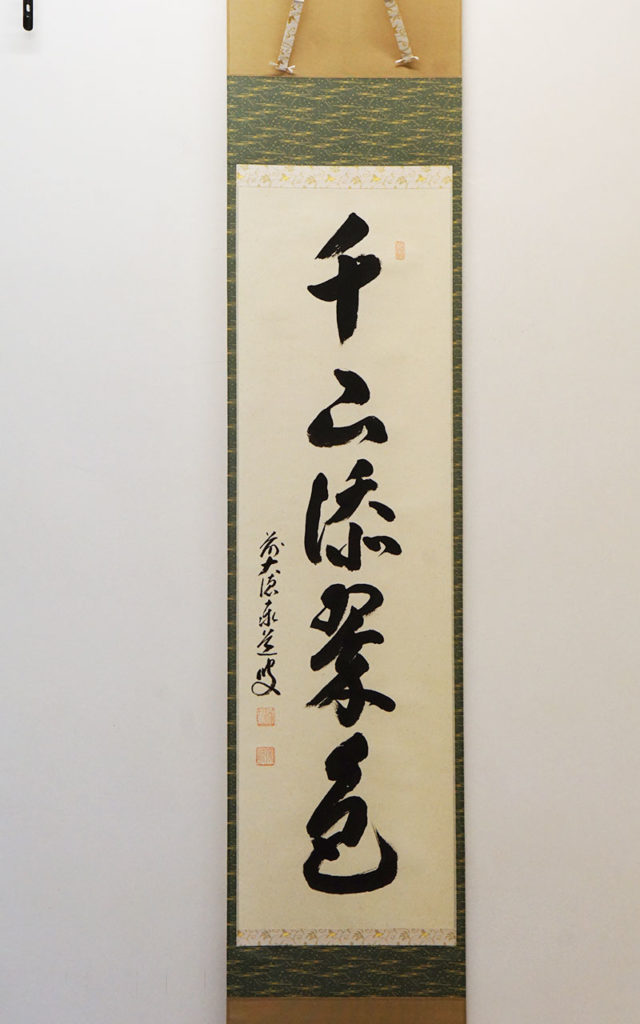 千山添翠色
前大徳泰道叟